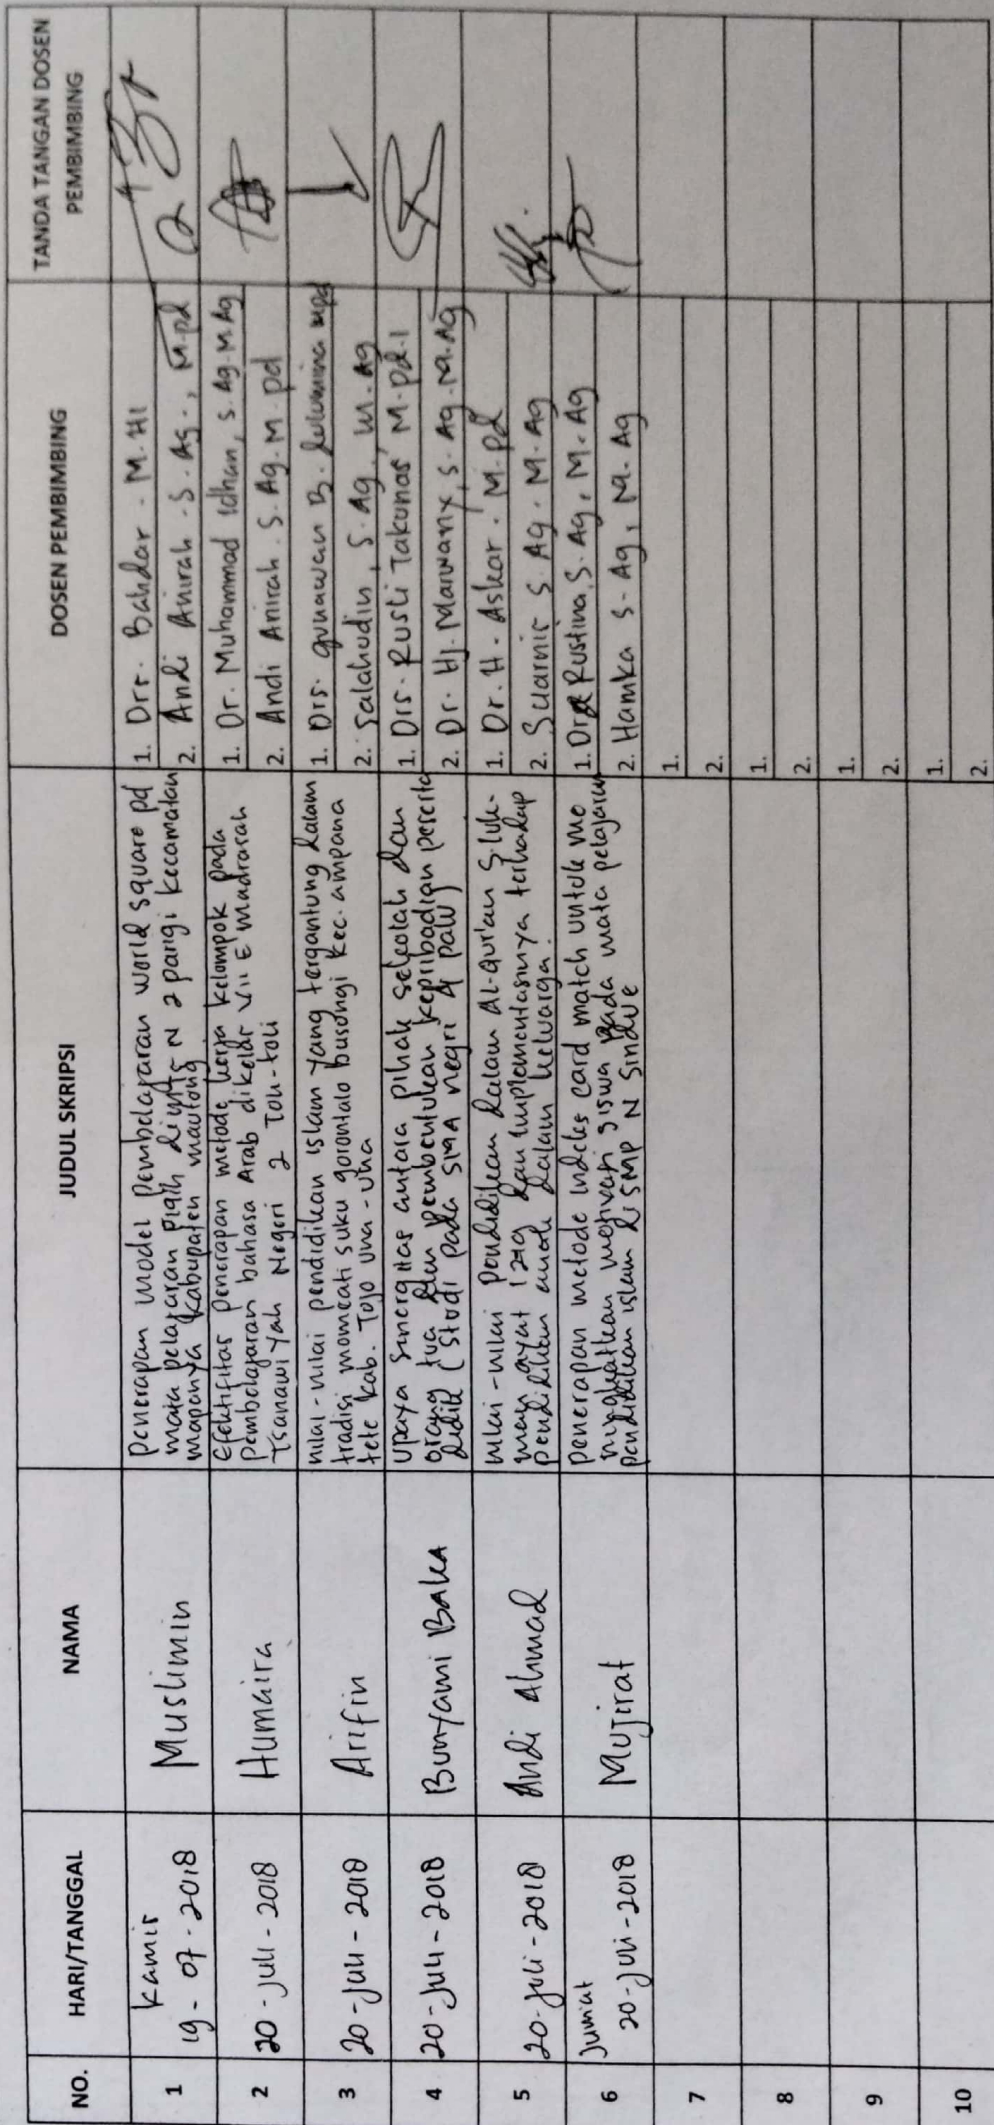 NO. HARI/TANGGAL NAMA JUDUL SKRIPSI DOSEN PEMBIMBING TANDA TANGAN DOSEN PEMBIMBING
1
Kamis
19 - 07 - 2018
Muslimin
Penerapan model pembelajaran world square pd
mata pelajaran fiqih di N 2 parigi kecamatan
Kabupaten moutong
1. Drs. Bahdar . M. HI
2. Andi Anirah . S. Ag., M.pd
2
20 - juli - 2018
Humaira
Efektifitas penerapan metode kerja kelompok pada
pembelajaran bahasa Arab dikelas VII E madrasah
Tsanawiyah Negeri 2 Toli-toli
1. Dr. Muhammad Idhan, S. Ag. M. Ag
2. Andi Anirah . S. Ag. M. pd
3
20 - juli - 2018
Arifin
nilai - nilai pendidikan islam yang tergantung dalam
tradisi momeati suku gorontalo busongi kec. ampana
tete kab. Tojo una - una
1. Drs. gunawan B. dulumina mpd
2. Salahudin, S. Ag., M. Ag
4
20 - juli - 2018
Bunyami Baka
Upaya sinergitas antara pihak sekolah dan
orang tua dlm pembentukan kepribadian peserta
didik ( Studi pada SMA negri 4 palu )
1. Drs. Rusli Takunas, M. Pd. I
2. Dr. Hj. Marwany, S. Ag. M. Ag
5
20 - juli - 2018
Andi Ahmad
nilai - nilai pendidikan dalam Al-Qur'an S. luk-
man ayat 12-19 dan implementasinya terhadap
pendidikan anak dalam keluarga.
1. Dr. H. Askar . M. Pd
2. Suarnir S. Ag . M. Ag
6
Jum'at
20 - juli - 2018
Mujirat
penerapan metode indeks card match untuk me
ningkatkan motivasi siswa pada mata pelajaran
pendidikan islam di SMP N Sindue
1. Rustina, S. Ag, M. Ag
2. Hamka S. Ag, M. Ag
7
1.
2.
8
1.
2.
9
1.
2.
10
1.
2.